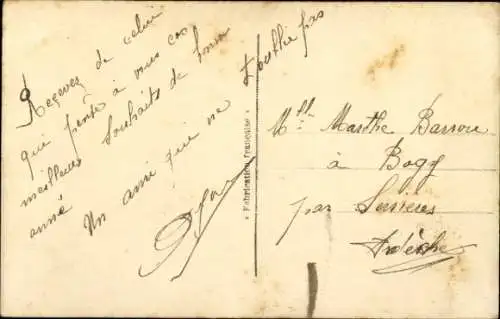 Recevez de celui
qui pense à vous ces
meilleurs souhaits de bonne
anné
Un ami qui ne
t'oublie pas
Fabrication française
Mlle Marthe Barrou
à Bogy
par Serrières
Ardèche